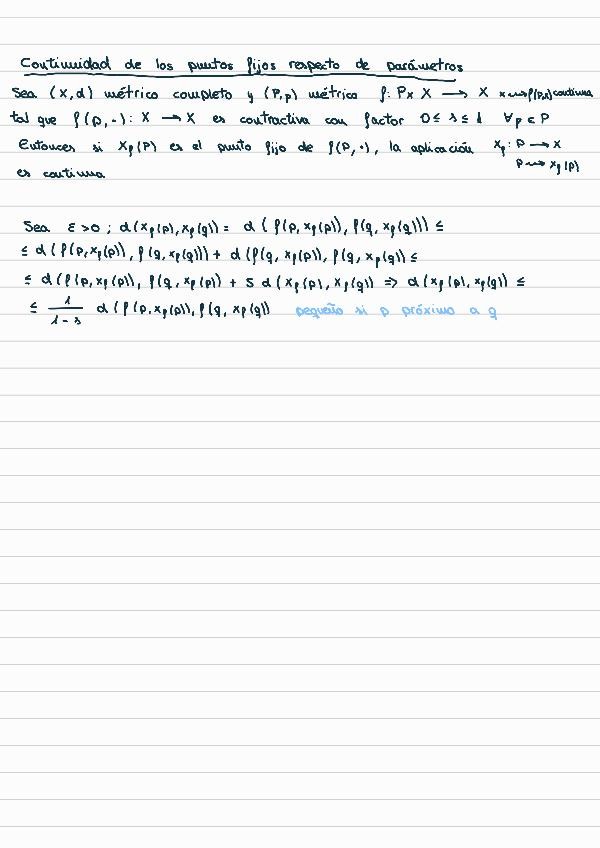 Continuidad de los puntos fijos respecto de parámetros
Sea (X,d) métrico completo y (P,ρ) métrico f: P×X → X x⇝f(p,x) continua
tal que f(p,·): X → X es contractiva con factor 0≤s≤1 ∀p∈P
Entonces si x_f(p) es el punto fijo de f(p,·), la aplicación x_f: P → X
p⇝x_f(p)
es continua
Sea ε>0; d(x_f(p),x_f(q)) = d(f(p,x_f(p)), f(q,x_f(q))) ≤
≤ d(f(p,x_f(p)), f(q,x_f(p))) + d(f(q,x_f(p)), f(q,x_f(q)) ≤
≤ d(f(p,x_f(p)), f(q,x_f(p)) + s d(x_f(p), x_f(q)) ⇒ d(x_f(p), x_f(q)) ≤
≤ 1/(1-s) d(f(p,x_f(p)), f(q,x_f(q)) pequeño si p próximo a q